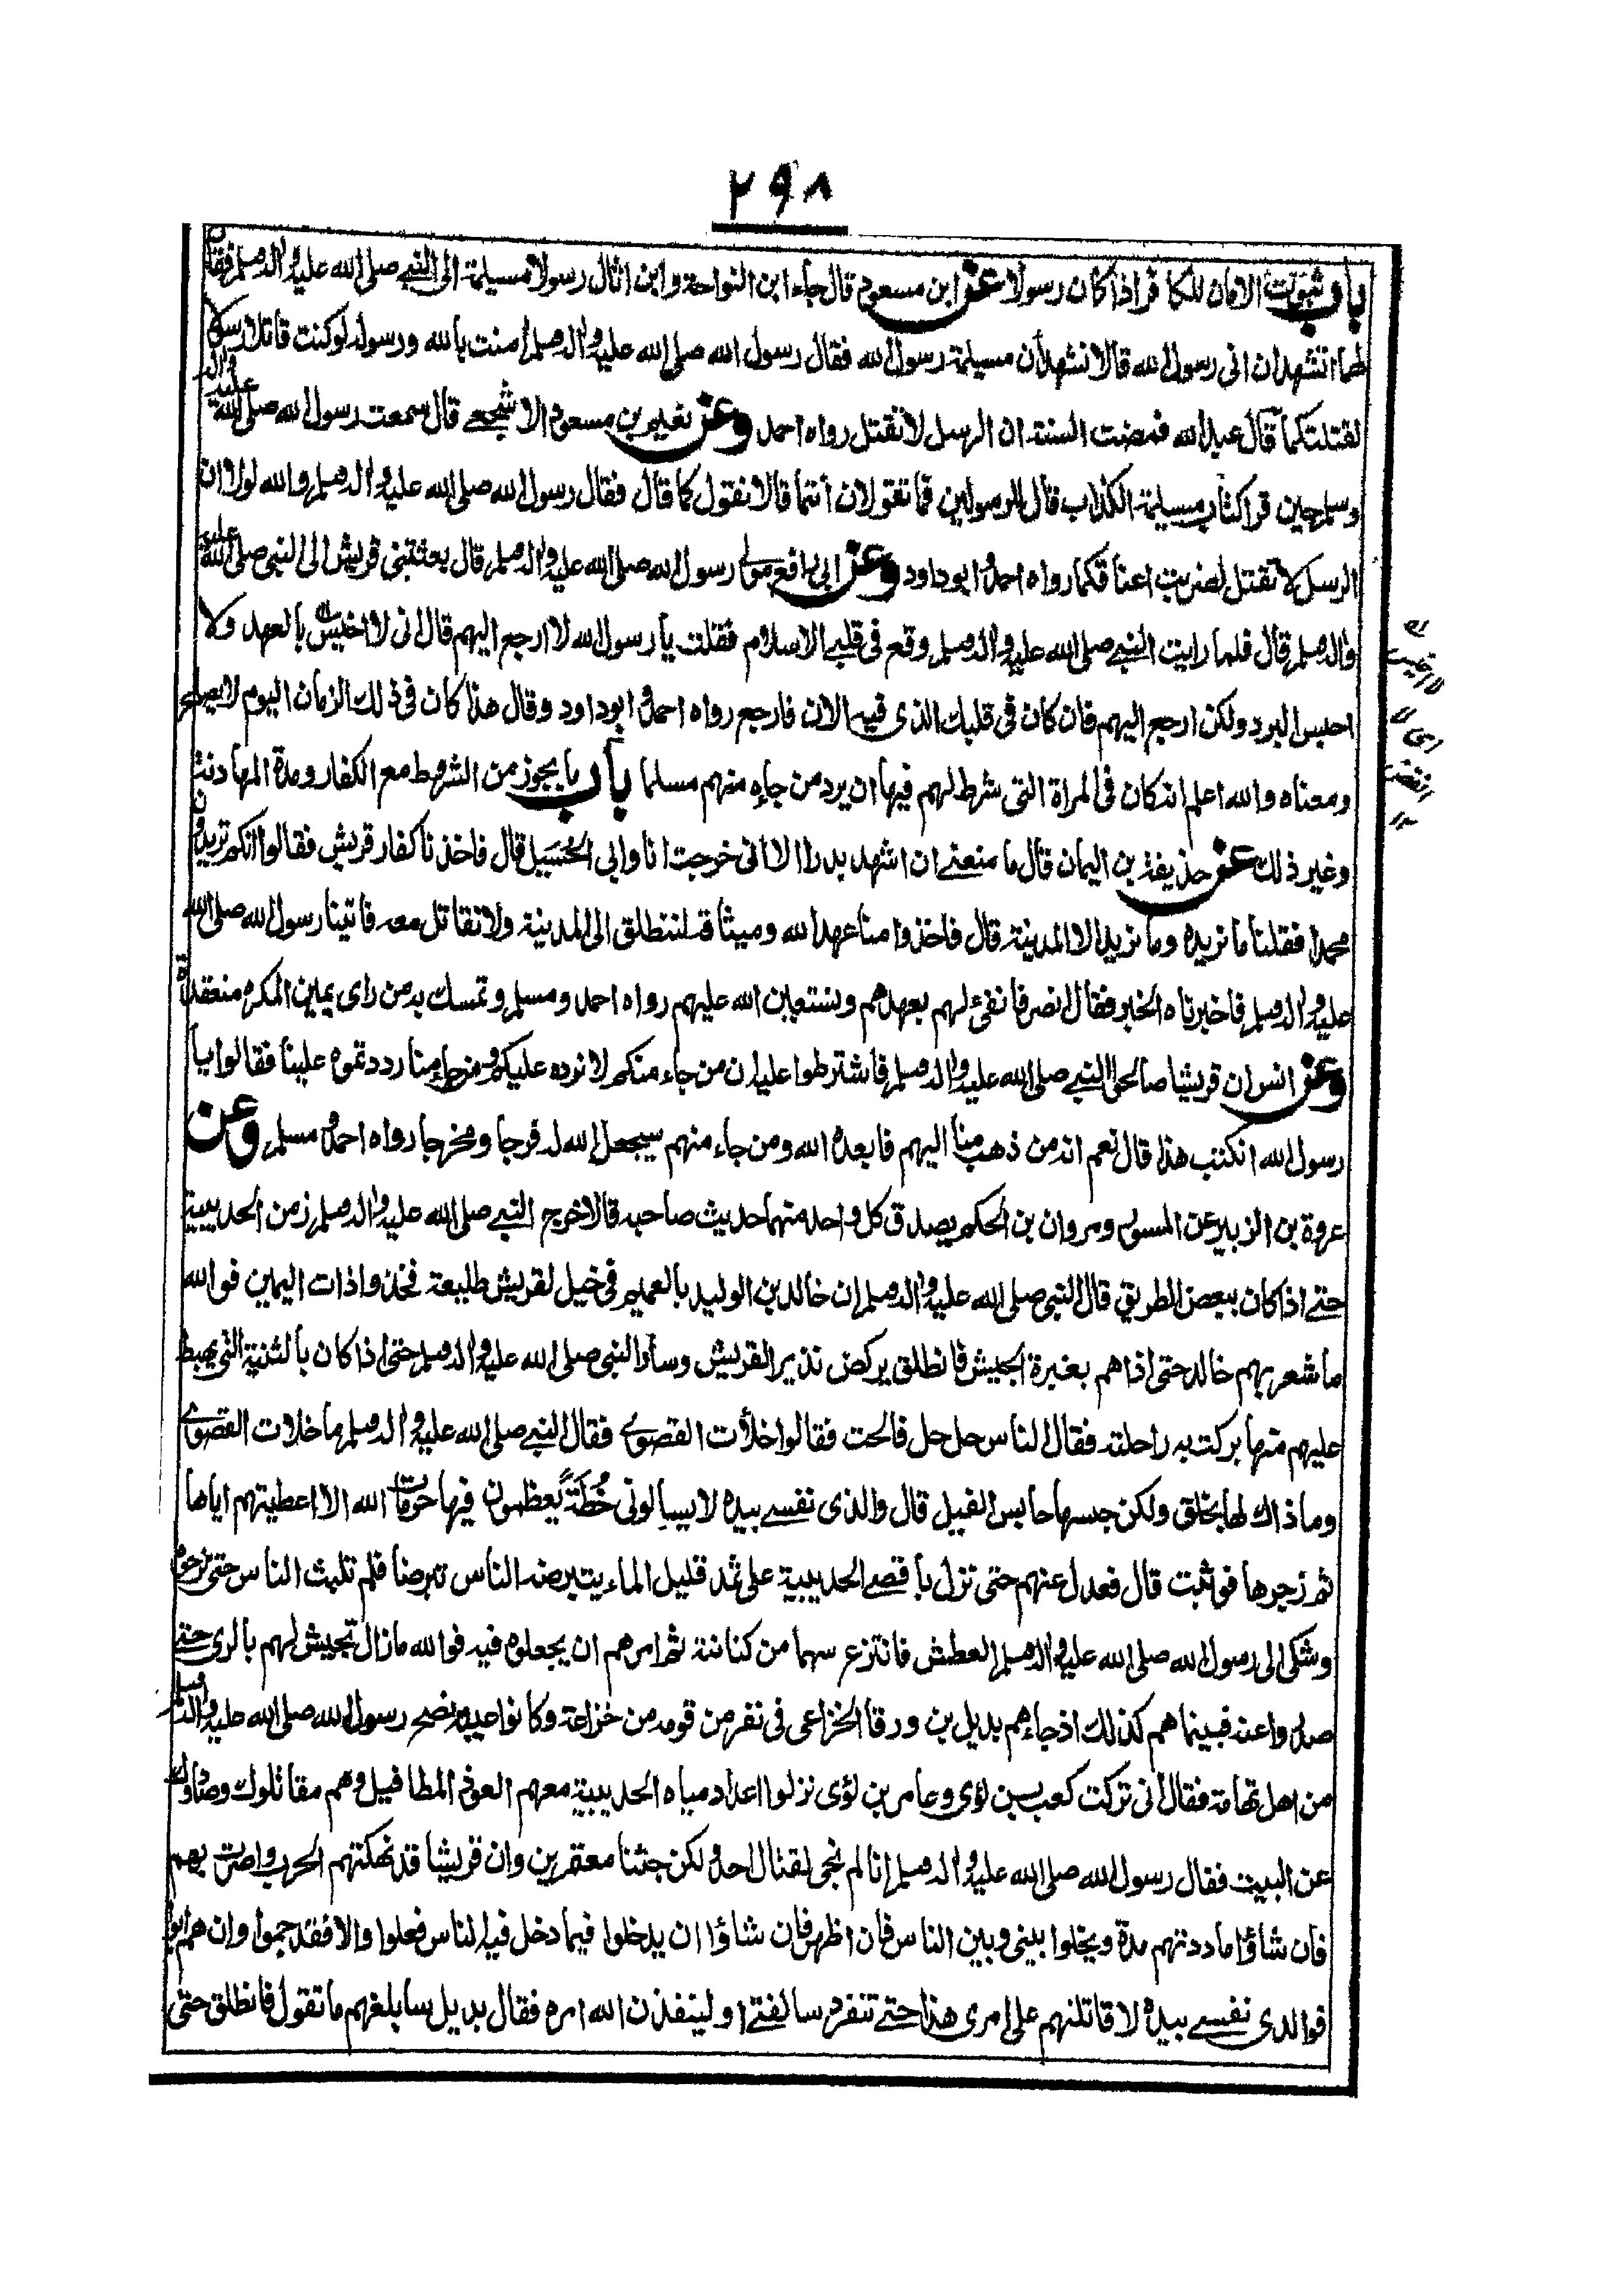 ٢٩٨
باب ثبوت الامان للكافر اذا كان رسولا عن ابن مسعود قال جاء ابن النواحة وابن اثال رسولا مسيلمة الى النبى صلى الله عليه واله وسلم فقال
لهما اتشهدان انى رسول الله قالا نشهد أن مسيلمة رسول الله فقال رسول الله صلى الله عليه واله وسلم امنت بالله ورسوله لو كنت قاتلا رسولا
لقتلتكما قال عبد الله فمضت السنة ان الرسل لا تقتل رواه احمد وعن نعيم بن مسعود الاشجعى قال سمعت رسول الله صلى الله عليه واله
وسلم حين قرا كتاب مسيلمة الكذاب قال للرسولين فما تقولان أنتما قالا نقول كما قال فقال رسول الله صلى الله عليه واله وسلم والله لولا ان
الرسل لا تقتل لضربت اعناقكما رواه احمد وابو داود وعن ابى رافع مولى رسول الله صلى الله عليه واله وسلم قال بعثتنى قريش الى النبى صلى الله عليه
واله وسلم قال فلما رايت النبى صلى الله عليه واله وسلم وقع فى قلبى الاسلام فقلت يا رسول الله لا ارجع اليهم قال انى لا اخيس بالعهد ولا
احبس البرد ولكن ارجع اليهم فان كان فى قلبك الذى فيه الان فارجع رواه احمد وابو داود وقال هذا كان فى ذلك الزمان اليوم لا يصلح
ومعناه والله اعلم انه كان فى المراة التى شرط لهم فيها ان يرد من جاءه منهم مسلما باب ما يجوز من الشروط مع الكفار ومدة المهادنة
وغير ذلك عن حذيفة بن اليمان قال ما منعنى ان اشهد بدرا الا انى خرجت انا وابى الحُسَيل قال فاخذنا كفار قريش فقالوا انكم تريدون
محمدا فقلنا ما نريده وما نريد الا المدينة قال فاخذوا منا عهد الله وميثاقه لننطلق الى المدينة ولا نقاتل معه فاتينا رسول الله صلى الله
عليه واله وسلم فاخبرناه الخبر فقال انصرفا نفى لهم بعهدهم ونستعين الله عليهم رواه احمد ومسلم وتمسك به من راى يمين المكره منعقدة
وعن انس ان قريشا صالحوا النبى صلى الله عليه واله وسلم فاشترطوا عليه ان من جاء منكم لا نرده عليكم ومن جاء منا رددتموه علينا فقالوا يا
رسول الله انكتب هذا قال نعم انه من ذهب منا اليهم فابعده الله ومن جاء منهم سيجعل الله له فرجا ومخرجا رواه احمد ومسلم وعن
عروة بن الزبير عن المسور ومروان بن الحكم يصدق كل واحد منهما حديث صاحبه قالا خرج النبى صلى الله عليه واله وسلم زمن الحديبية
حتى اذا كان ببعض الطريق قال النبى صلى الله عليه واله وسلم إن خالد بن الوليد بالغميم فى خيل لقريش طليعة فخذوا ذات اليمين فوالله
ما شعر بهم خالد حتى اذا هم بغبرة الجيش فانطلق يركض نذيرا لقريش وسار النبى صلى الله عليه واله وسلم حتى اذا كان بالثنية التى يهبط
عليهم منها بركت به راحلته فقال الناس حل حل فالحت فقالوا خلأت القصوى فقال النبى صلى الله عليه واله وسلم ما خلات القصوى
وما ذاك لها بخلق ولكن حبسها حابس الفيل قال والذى نفسى بيده لا يسالونى خُطَةً يعظمون فيها حرمات الله الا اعطيتهم اياها
ثم زجرها فوثبت قال فعدل عنهم حتى نزل باقصى الحديبية على ثمد قليل الماء يتبرضه الناس تبرضا فلم تلبث الناس حتى نزحوه
وشكى الى رسول الله صلى الله عليه واله وسلم العطش فانتزع سهما من كنانته ثم امرهم ان يجعلوه فيه فوالله ما زال تجيش لهم بالرى حتى
صدروا عنه فبينما هم كذلك اذ جاءهم بديل بن ورقا الخزاعى فى نفر من قومه من خزاعة وكانوا عيبة نصح رسول الله صلى الله عليه واله وسلم
من اهل تهامة فقال انى تركت كعب بن لؤى وعامر بن لؤى نزلوا اعداد مياه الحديبية معهم العوذ المطافيل وهم مقاتلوك وصادوك
عن البيت فقال رسول الله صلى الله عليه واله وسلم إنا لم نجى لقتال احد ولكن جئنا معتمرين وان قريشا قد نهكتهم الحرب واضرت بهم
فان شاؤا ماددتهم مدة ويخلوا بينى وبين الناس فان اظهر فان شاؤا ان يدخلوا فيما دخل فيه الناس فعلوا والا فقد جموا وان هم ابوا
فوالذى نفسى بيده لا قاتلنهم على امرى هذا حتى تنفرد سالفتى او لينفذن الله امره فقال بديل سابلغهم ما تقول فانطلق حتى